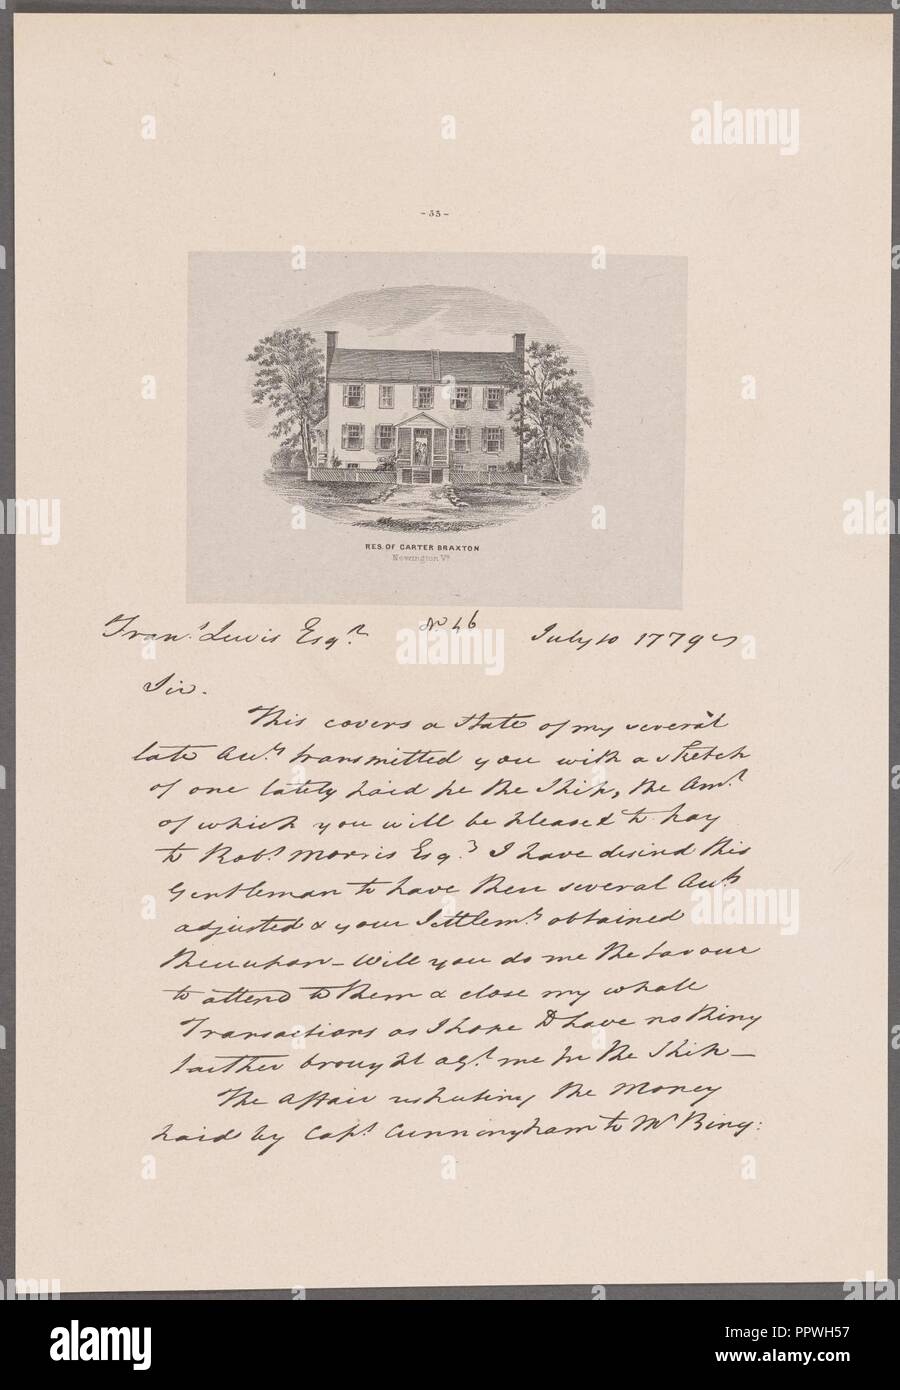 - 33 -
RES. OF CARTER BRAXTON
Newington Va
Frans. Lewis Esqr. No 46 July 10 1779
Sir.
This covers a State of my several
late Auts transmitted you with a sketch
of one lately paid pr the Ship, the Amt.
of which you will be pleased to pay
to Robt. Morris Esqr. I have desired this
Gentleman to have these several Auts
adjusted & your Settlemt. obtained
thereupon - Will you do me the favour
to attend to them & close my whole
Transactions as I hope to have nothing
farther brought agt. me for the Ship -
The affair respecting the Money
paid by Capt. Cunningham to Mr Bing:
a alamy
alamy
Image ID: PPWH57
www.alamy.com